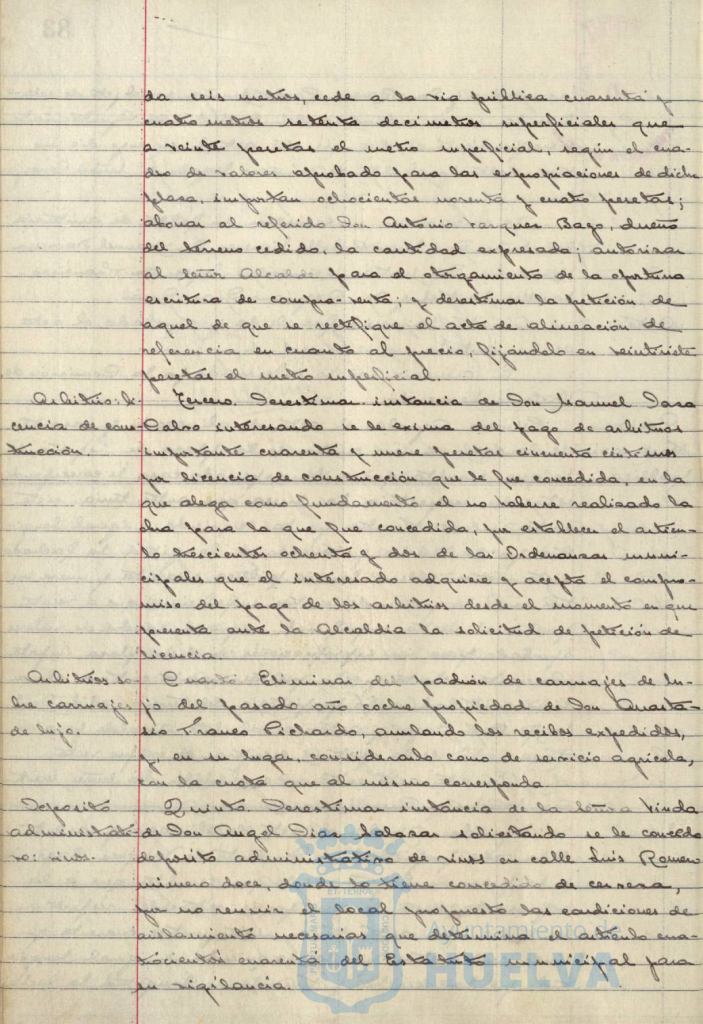 da seis metros, cede a la via pública cuarenta y
cuatro metros setenta decimetros superficiales que
a veinte pesetas el metro superficial, según el cua-
dro de valores aprobado para las expropiaciones de dicha
plaza, importan ochocientas noventa y cuatro pesetas;
abonar al referido Don Antonio Vazquez Bago, dueño
del terreno cedido, la cantidad expresada; autorizar
al señor Alcalde para el otorgamiento de la oportuna
escritura de compra-venta; y desestimar la petición de
aquel de que se rectifique el acta de alineación de
referencia en cuanto al precio, fijándolo en veintisiete
pesetas el metro superficial.
Arbitrio: li-
cencia de cons-
trucción.
Tercero. Desestimar instancia de Don Manuel
Calvo interesando se le exima del pago de arbitrios
importante cuarenta y nueve pesetas cincuenta céntimos
por licencia de construcción que le fue concedida, en la
que alega como fundamento el no haberse realizado la
obra para la que fue concedida, por establecer el artícu-
lo trescientos ochenta y dos de las Ordenanzas muni-
cipales que el interesado adquiere y acepta el compro-
miso del pago de los arbitrios desde el momento en que
presenta ante la Alcaldía la solicitud de petición de
licencia.
Arbitrios so-
bre carruajes
de lujo.
Cuarto Eliminar del padrón de carruajes de lu-
jo del pasado año coche propiedad de Don Anasta-
sio Franco Pichardo, anulando los recibos expedidos,
y, en su lugar, considerarlo como de servicio agrícola,
con la cuota que al mismo corresponda.
Depósito
administrati-
vo: vinos.
Quinto. Desestimar instancia de la señora Viuda
de Don Angel Diaz Salazar solicitando se le conceda
depósito administrativo de vinos en calle Luis Romero
número doce, donde lo tiene concedido de cerveza,
por no reunir el local propuesto las condiciones de
aislamiento necesarias que determina el artículo cua-
trocientos cuarenta del Estatuto municipal para
su vigilancia.
Ayuntamiento de
HUELVA